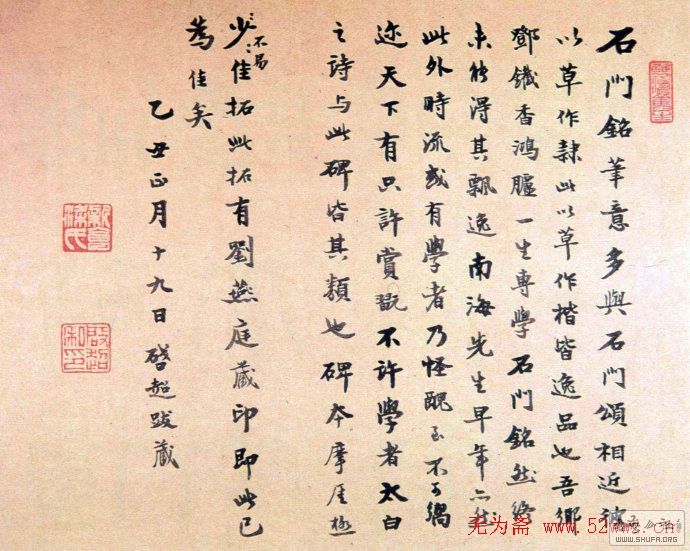 石門銘筆意多與石門頌相近彼
以草作隸此以草作楷皆逸品也吾鄉
鄧鐵香鴻臚一生專學石門銘然終
未能得其飄逸南海先生早年亦然
此外時流或有學者乃怪醜至不可嚮
迩天下有只許賞翫不許學者太白
之詩與此碑皆其類也碑本摩厓極
少不易佳拓此拓有劉燕庭藏印即此已
為佳矣
乙丑正月十九日啓超跋藏
新會梁氏
啟超私印
无为斋 www.52wwz.cn
WWW.SHUFA.ORG